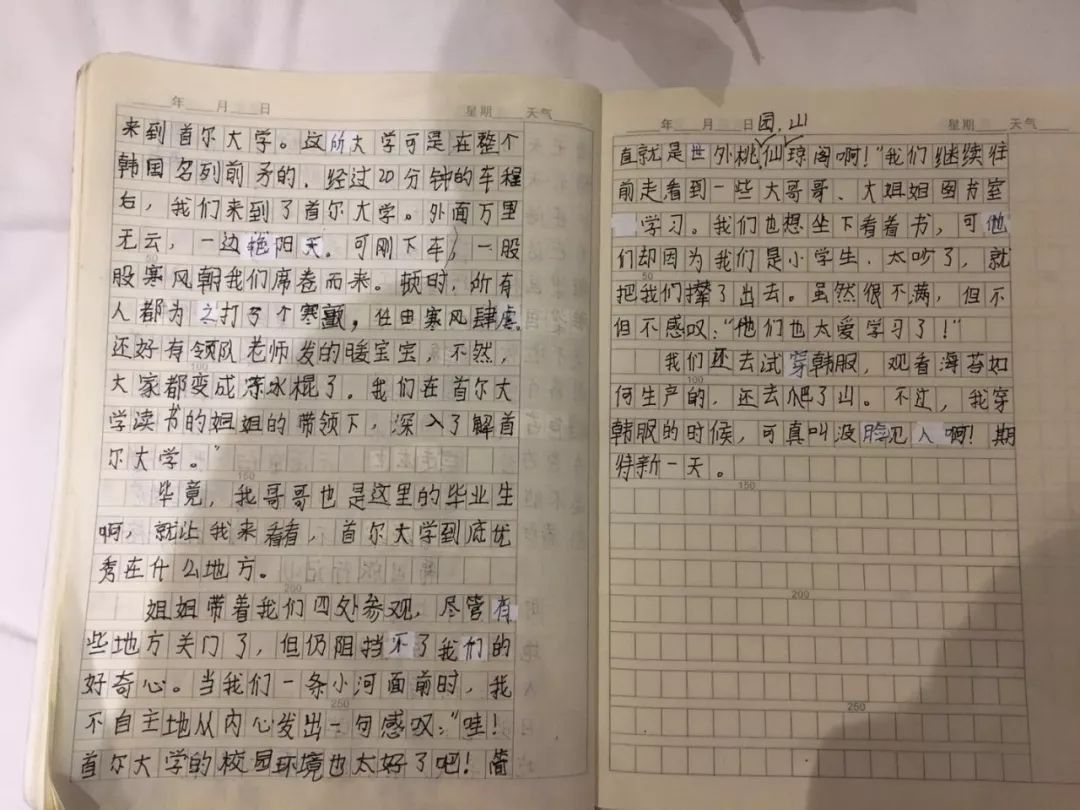 年 月 日 星期 天气
来到首尔大学。这所大学可是在整个
韩国名列前矛的，经过20分钟的车程
后，我们来到了首尔大学。外面万里
无云，一边艳阳天。可刚下车，一股
股寒风朝我们席卷而来。顿时，所有
人都为之打了个寒颤，任由寒风肆虐
还好有领队老师发的暖宝宝，不然，
大家都变成冻冰棍了。我们在首尔大
学读书的姐姐的带领下，深入了解首
尔大学。”
毕竟，我哥哥也是这里的毕业生
啊，就让我来看看，首尔大学到底优
秀在什么地方。
姐姐带着我们四处参观，尽管有
些地方关门了，但仍阻挡不了我们的
好奇心。当我们一条小河面前时，我
不自主地从内心发出一句感叹：“哇！
首尔大学的校园环境也太好了吧！简
50
100
150
200
250
年 月 日 星期 天气
园，山
直就是世外桃仙琼阁啊！”我们继续往
前走看到一些大哥哥、大姐姐图书室
学习。我们也想坐下看着书，可他
们却因为我们是小学生，太吵了，就
把我们撵了出去。虽然很不满，但不
但不感叹：“他们也太爱学习了！”
我们还去试穿韩服，观看海苔如
何生产的，还去爬了山。不过，我穿
韩服的时候，可真叫没脸见人啊！期
待新一天。
50
100
150
200
250